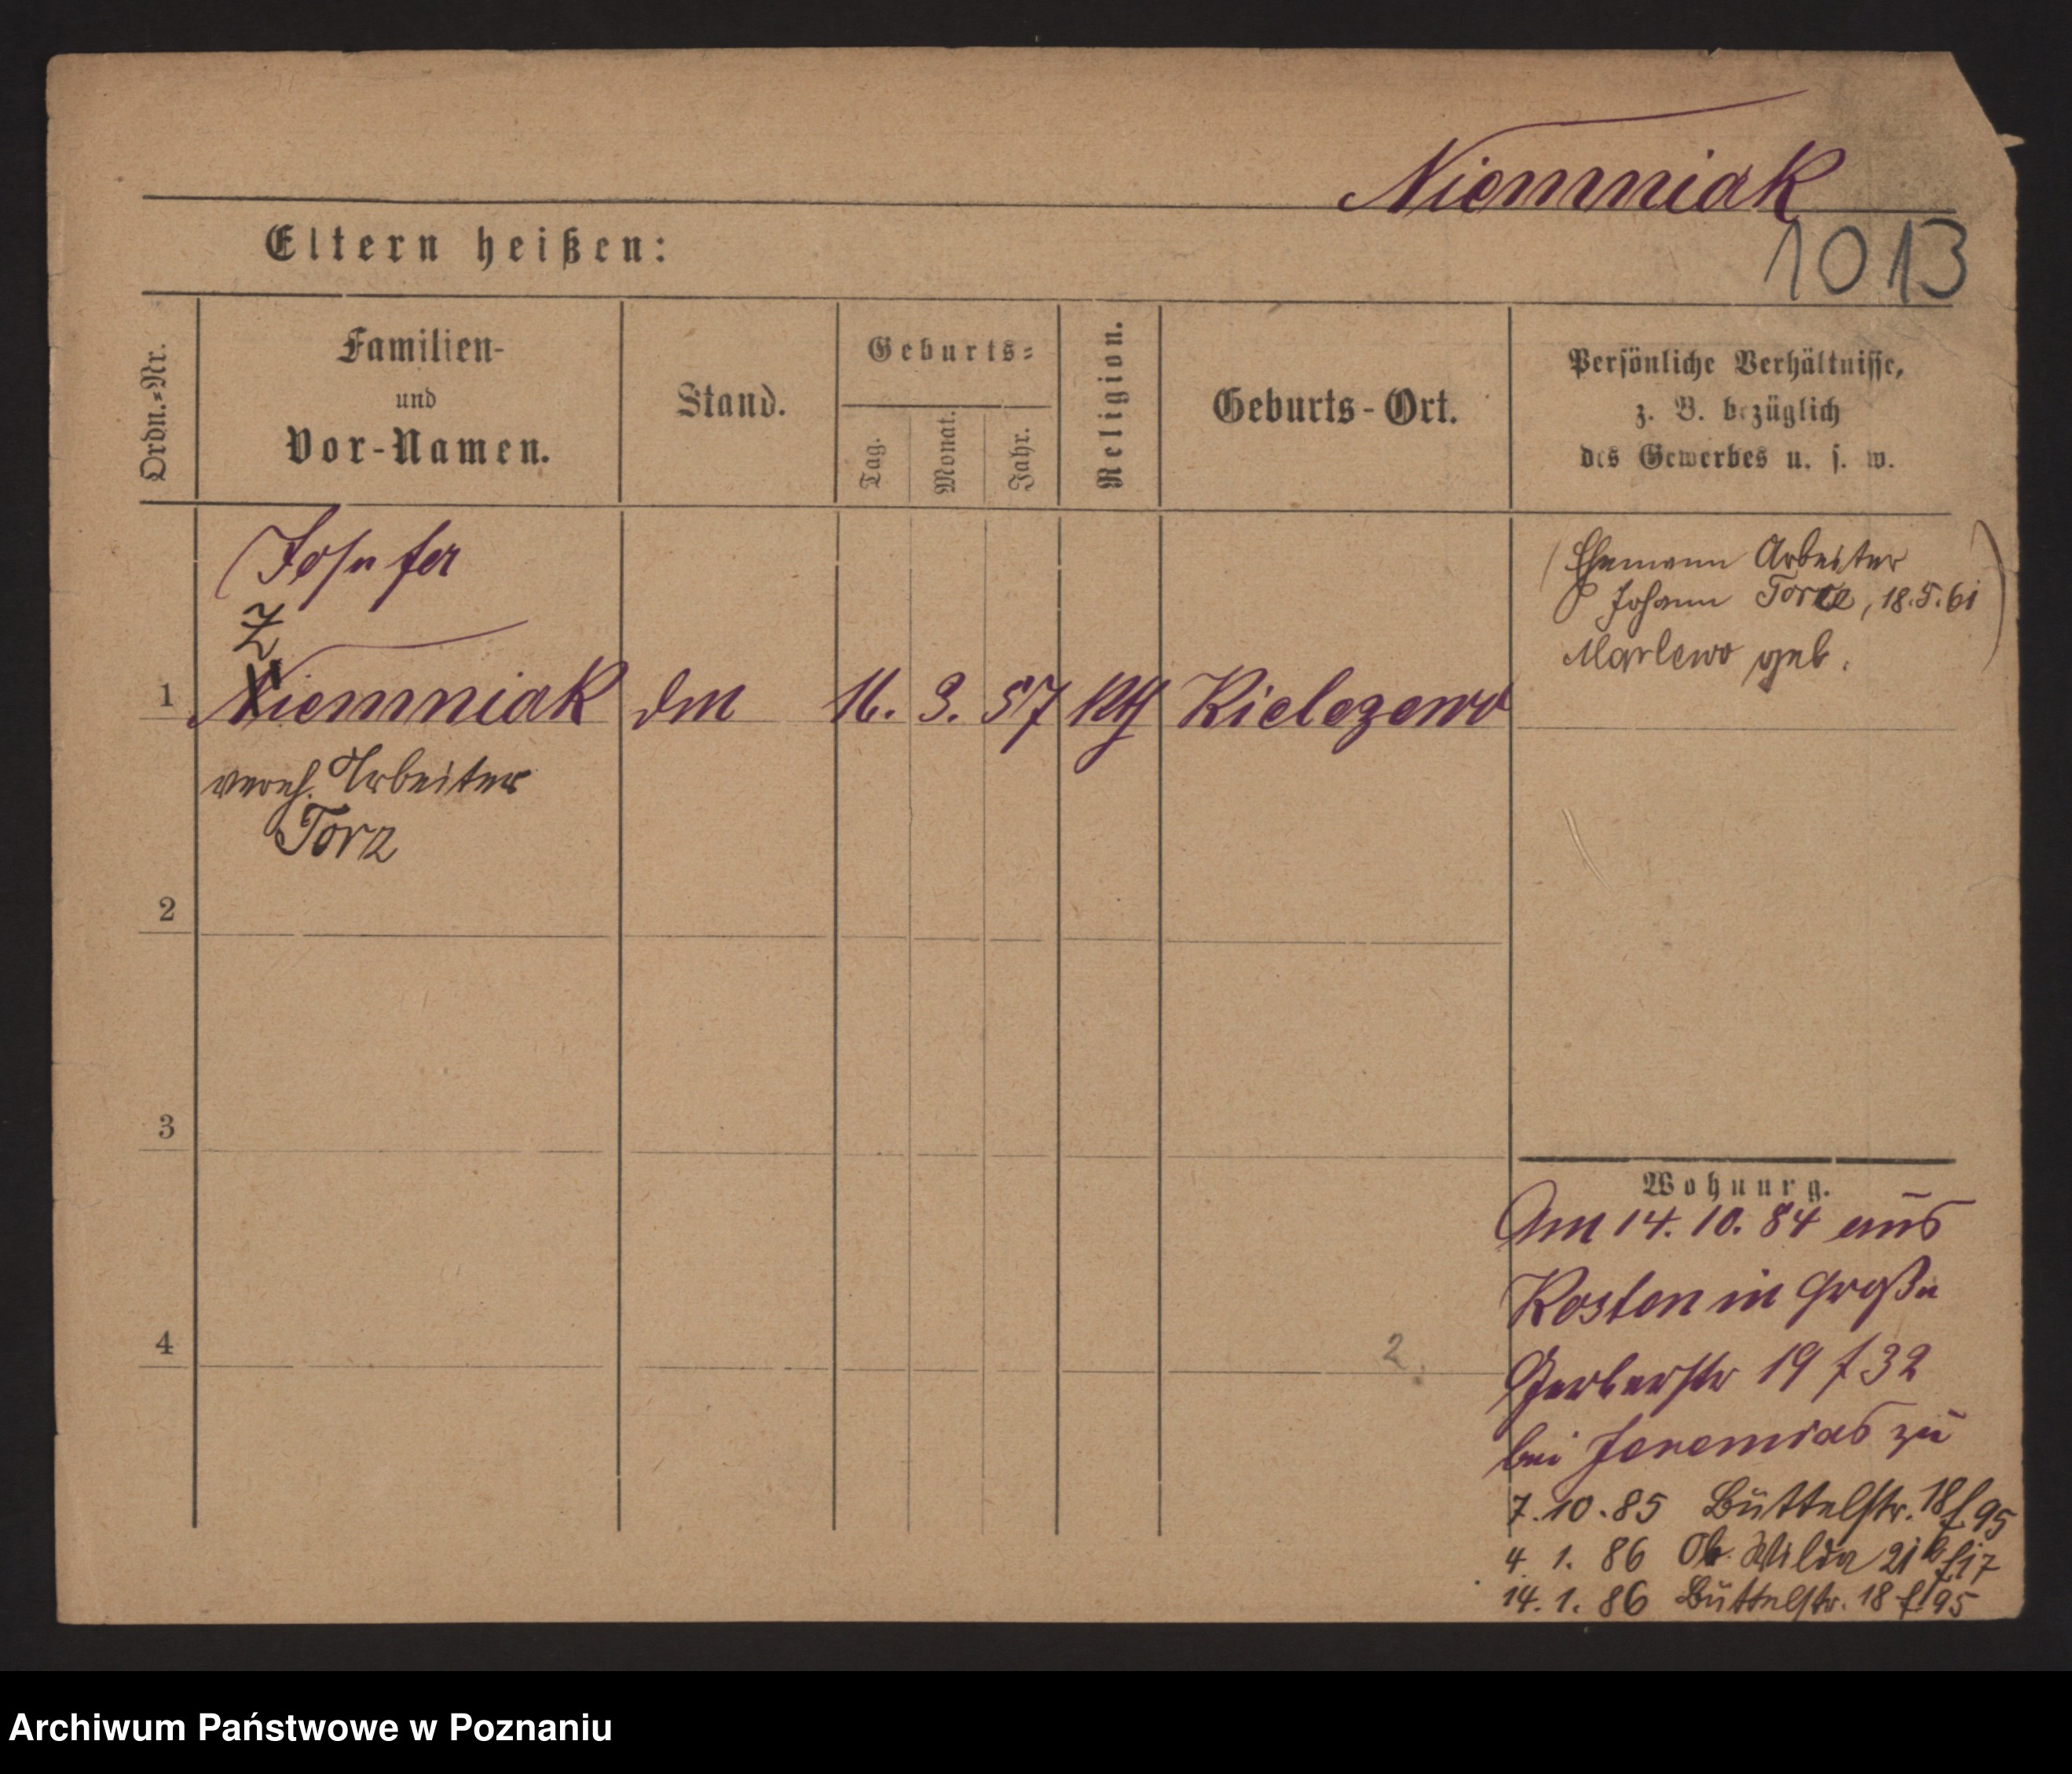 Niemniak
1013
Eltern heißen:
Ordn.-Nr.
Familien-
und
Vor-Namen.
Stand.
Geburts-
Tag.
Monat.
Jahr.
Religion.
Geburts-Ort.
Persönliche Verhältnisse,
z. B. bezüglich
des Gewerbes u. s. w.
(Josefa
Z
1 Niemniak 16. 3. 57 Kielczewo
(Ehemann Arbeiter
Johann Torz, 18.5.61
Marlewo geb.)
vereh. Arbeiter
Torz
2
3
4
2.
Wohnung.
Am 14. 10. 84 aus
Kosten in Große
Gerberstr 19 f 32
bei Jeremias zu
7. 10. 85 Büttelstr. 18 f 95
4. 1. 86 Ob. Wilda 21b f 17
14. 1. 86 Büttelstr. 18 f 95
Archiwum Państwowe w Poznaniu